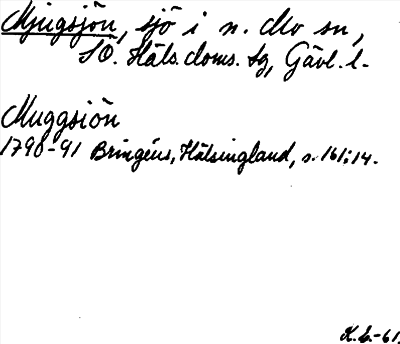 Mjugsjön, sjö i n. Mo sn,
SÖ. Häls. doms. sg, Gävl. l.
Muggsiön
1790-91 Bringéus, Hälsingland, s. 161:14.
K.L.-61.